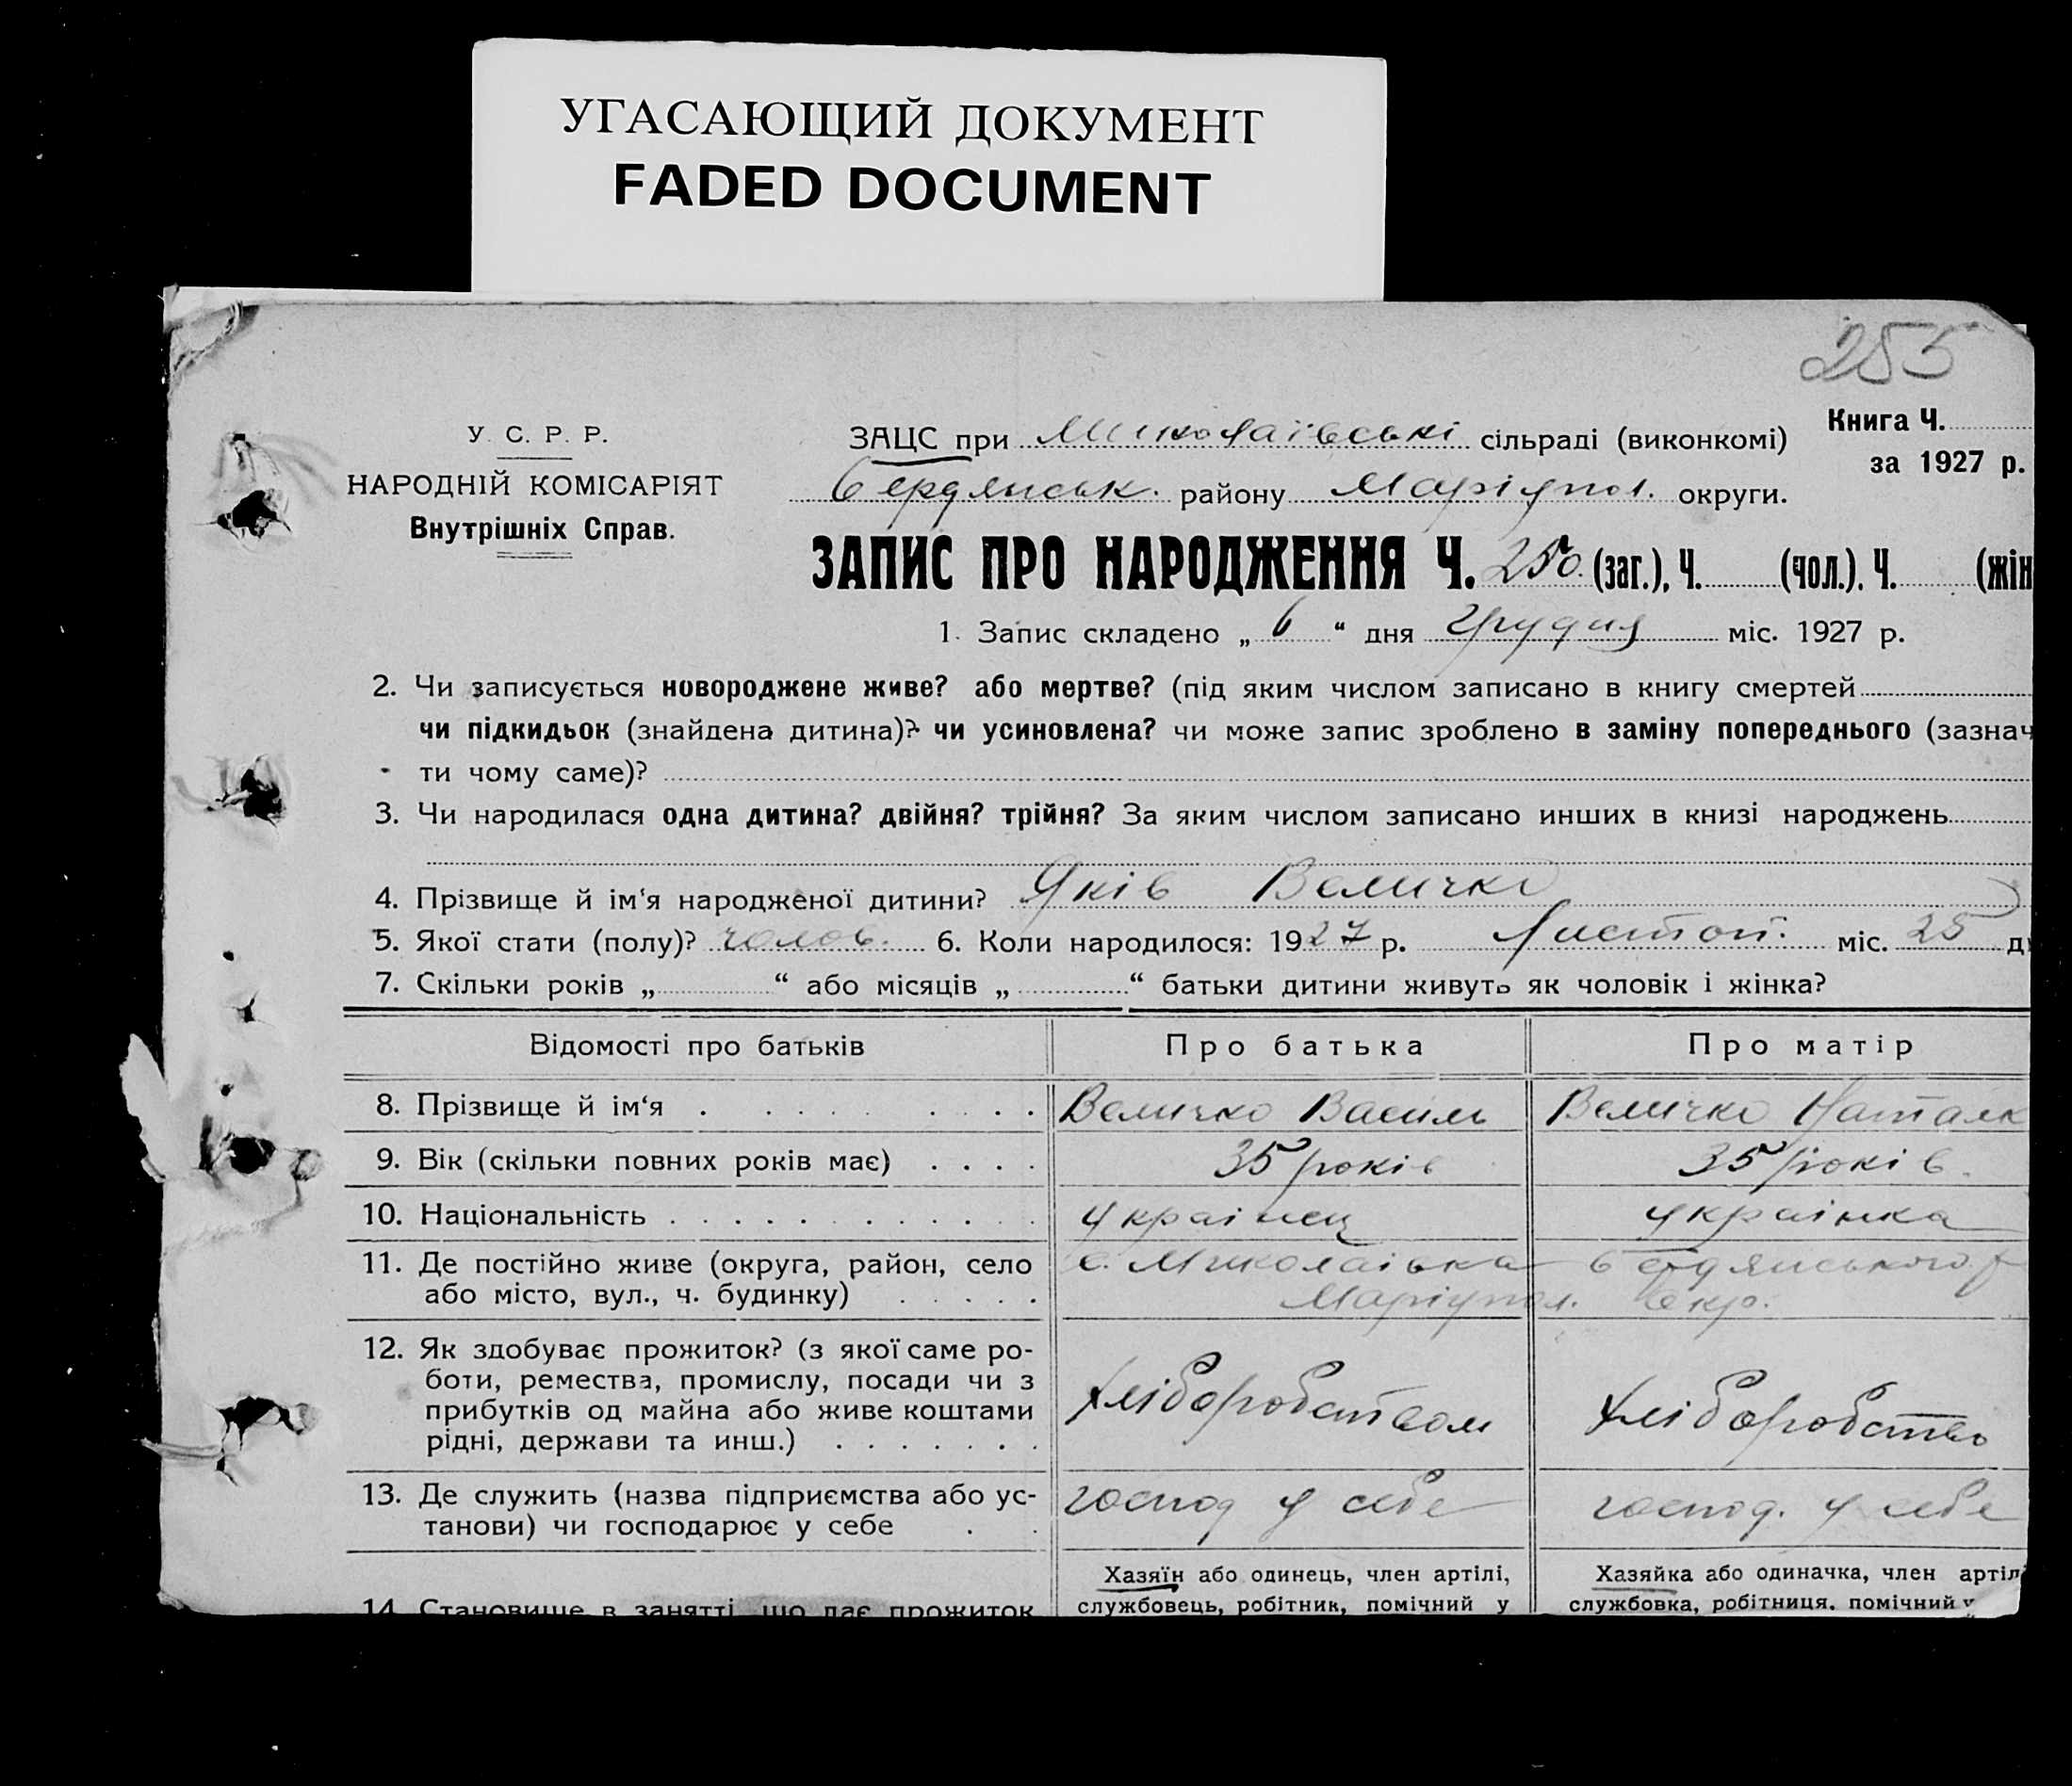 УГАСАЮЩИЙ ДОКУМЕНТ
FADED DOCUMENT
255
У. С. Р. Р.
НАРОДНІЙ КОМІСАРІЯТ
Внутрішніх Справ.
ЗАЦС при Миколаївські сільраді (виконкомі)
Бердянськ. району Маріупол. округи.
Книга Ч.
за 1927 р.
ЗАПИС ПРО НАРОДЖЕННЯ Ч. 250 (заг.), Ч. (чол.). Ч. (жін
1. Запис складено „ 6 “ дня грудня міс. 1927 р.
2. Чи записується новороджене живе? або мертве? (під яким числом записано в книгу смертей
чи підкидьок (знайдена дитина)? чи усиновлена? чи може запис зроблено в заміну попереднього (зазнач
ти чому саме)?
3. Чи народилася одна дитина? двійня? трійня? За яким числом записано инших в книзі народжень
4. Прізвище й ім‘я народженої дитини? Яків Величко
5. Якої стати (полу)? чолов. 6. Коли народилося: 1927 р. Листоп. міс. 25 д
7. Скільки років „ “ або місяців „ “ батьки дитини живуть як чоловік і жінка?
Відомості про батьків Про батька Про матір
8. Прізвище й ім‘я Величко Василь Величко Наталк
9. Вік (скільки повних років має) 35 років 35 років
10. Національність українец українка
11. Де постійно живе (округа, район, село с. Миколаівка Бердянського р
або місто, вул., ч. будинку) Маріупол. Окр.
12. Як здобуває прожиток? (з якої саме ро-
боти, ремества, промислу, посади чи з
прибутків од майна або живе коштами
рідні, держави та инш.)
хліборобством хліборобство
13. Де служить (назва підприємства або ус-
танови) чи господарює у себе
господ у себе господ. у себе
Хазяїн або одинець, член артілі,
службовець, робітник, помічний у
Хазяйка або одиначка, член артіл
службовка, робітниця, помічний у
14. Становище в занятті, що дає прожиток